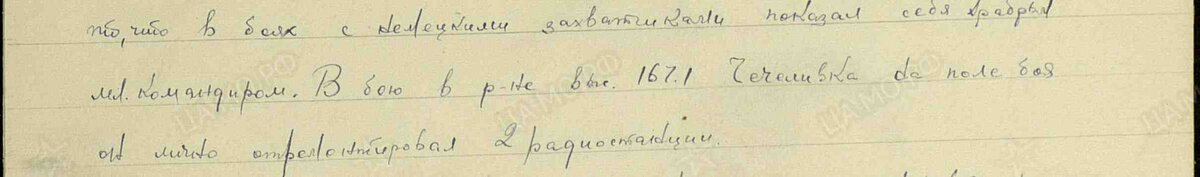 то, что в боях с немецкими захватчиками показал себя храбрым
мл. командиром. В бою в р-не выс. 167.1 Чечеливка на поле боя
он лично отремонтировал 2 радиостанции.